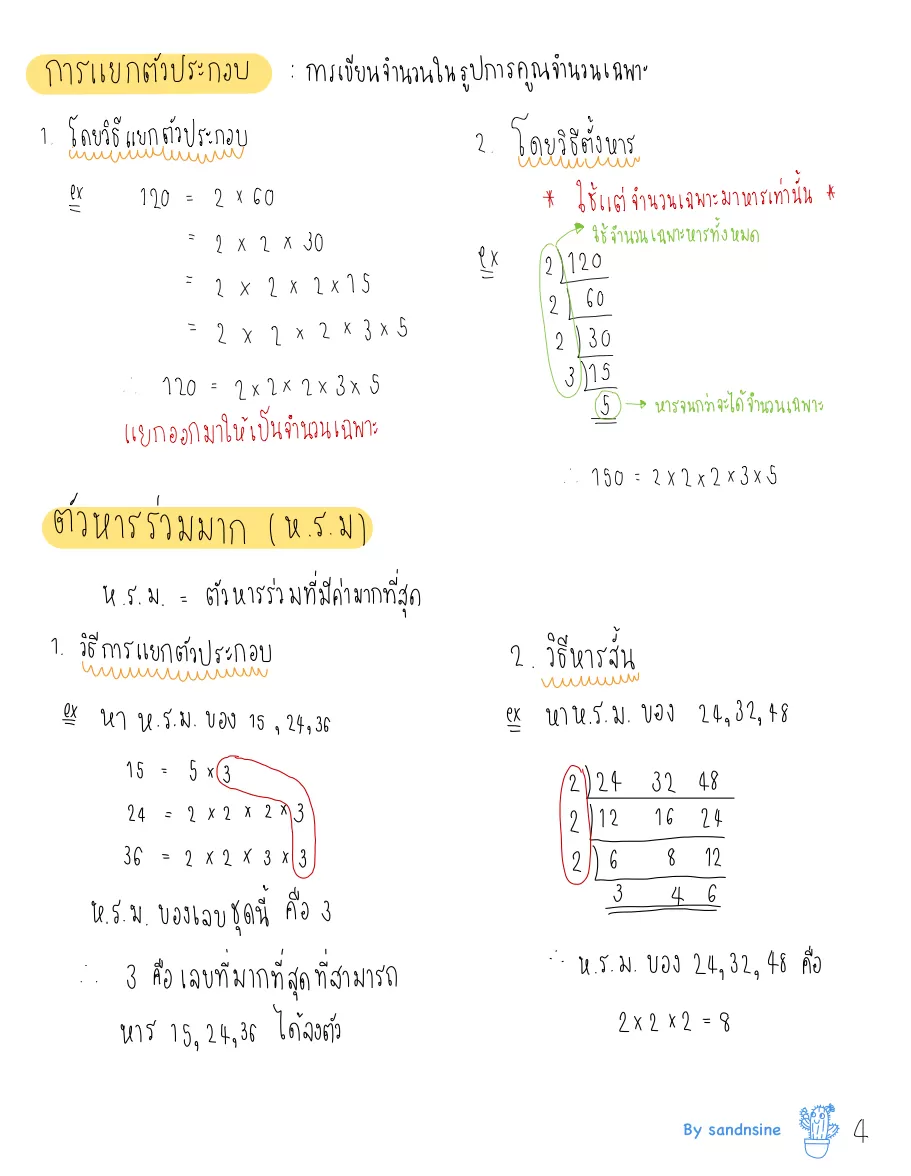 การแยกตัวประกอบ : การเขียนจำนวนในรูปการคูณจำนวนเฉพาะ
1. โดยวิธีแยกตัวประกอบ
ex 120 = 2 × 60
= 2 × 2 × 30
= 2 × 2 × 2 × 15
= 2 × 2 × 2 × 3 × 5
∴ 120 = 2 × 2 × 2 × 3 × 5
แยกออกมาให้เป็นจำนวนเฉพาะ
2. โดยวิธีตั้งหาร
* ใช้แต่จำนวนเฉพาะมาหารเท่านั้น *
ใช้จำนวนเฉพาะหารทั้งหมด
ex 2)120
2)60
2)30
3)15
5 → หารจนกว่าจะได้จำนวนเฉพาะ
∴ 150 = 2 × 2 × 2 × 3 × 5
ตัวหารร่วมมาก (ห.ร.ม)
ห.ร.ม. = ตัวหารร่วมที่มีค่ามากที่สุด
1. วิธีการแยกตัวประกอบ
ex หา ห.ร.ม. ของ 15, 24, 36
15 = 5 × 3
24 = 2 × 2 × 2 × 3
36 = 2 × 2 × 3 × 3
ห.ร.ม. ของเลขชุดนี้ คือ 3
∴ 3 คือเลขที่มากที่สุดที่สามารถ
หาร 15, 24, 36 ได้ลงตัว
2. วิธีหารสั้น
ex หาห.ร.ม. ของ 24, 32, 48
2)24 32 48
2)12 16 24
2)6 8 12
3 4 6
∴ ห.ร.ม. ของ 24, 32, 48 คือ
2 × 2 × 2 = 8
By sandnsine 4